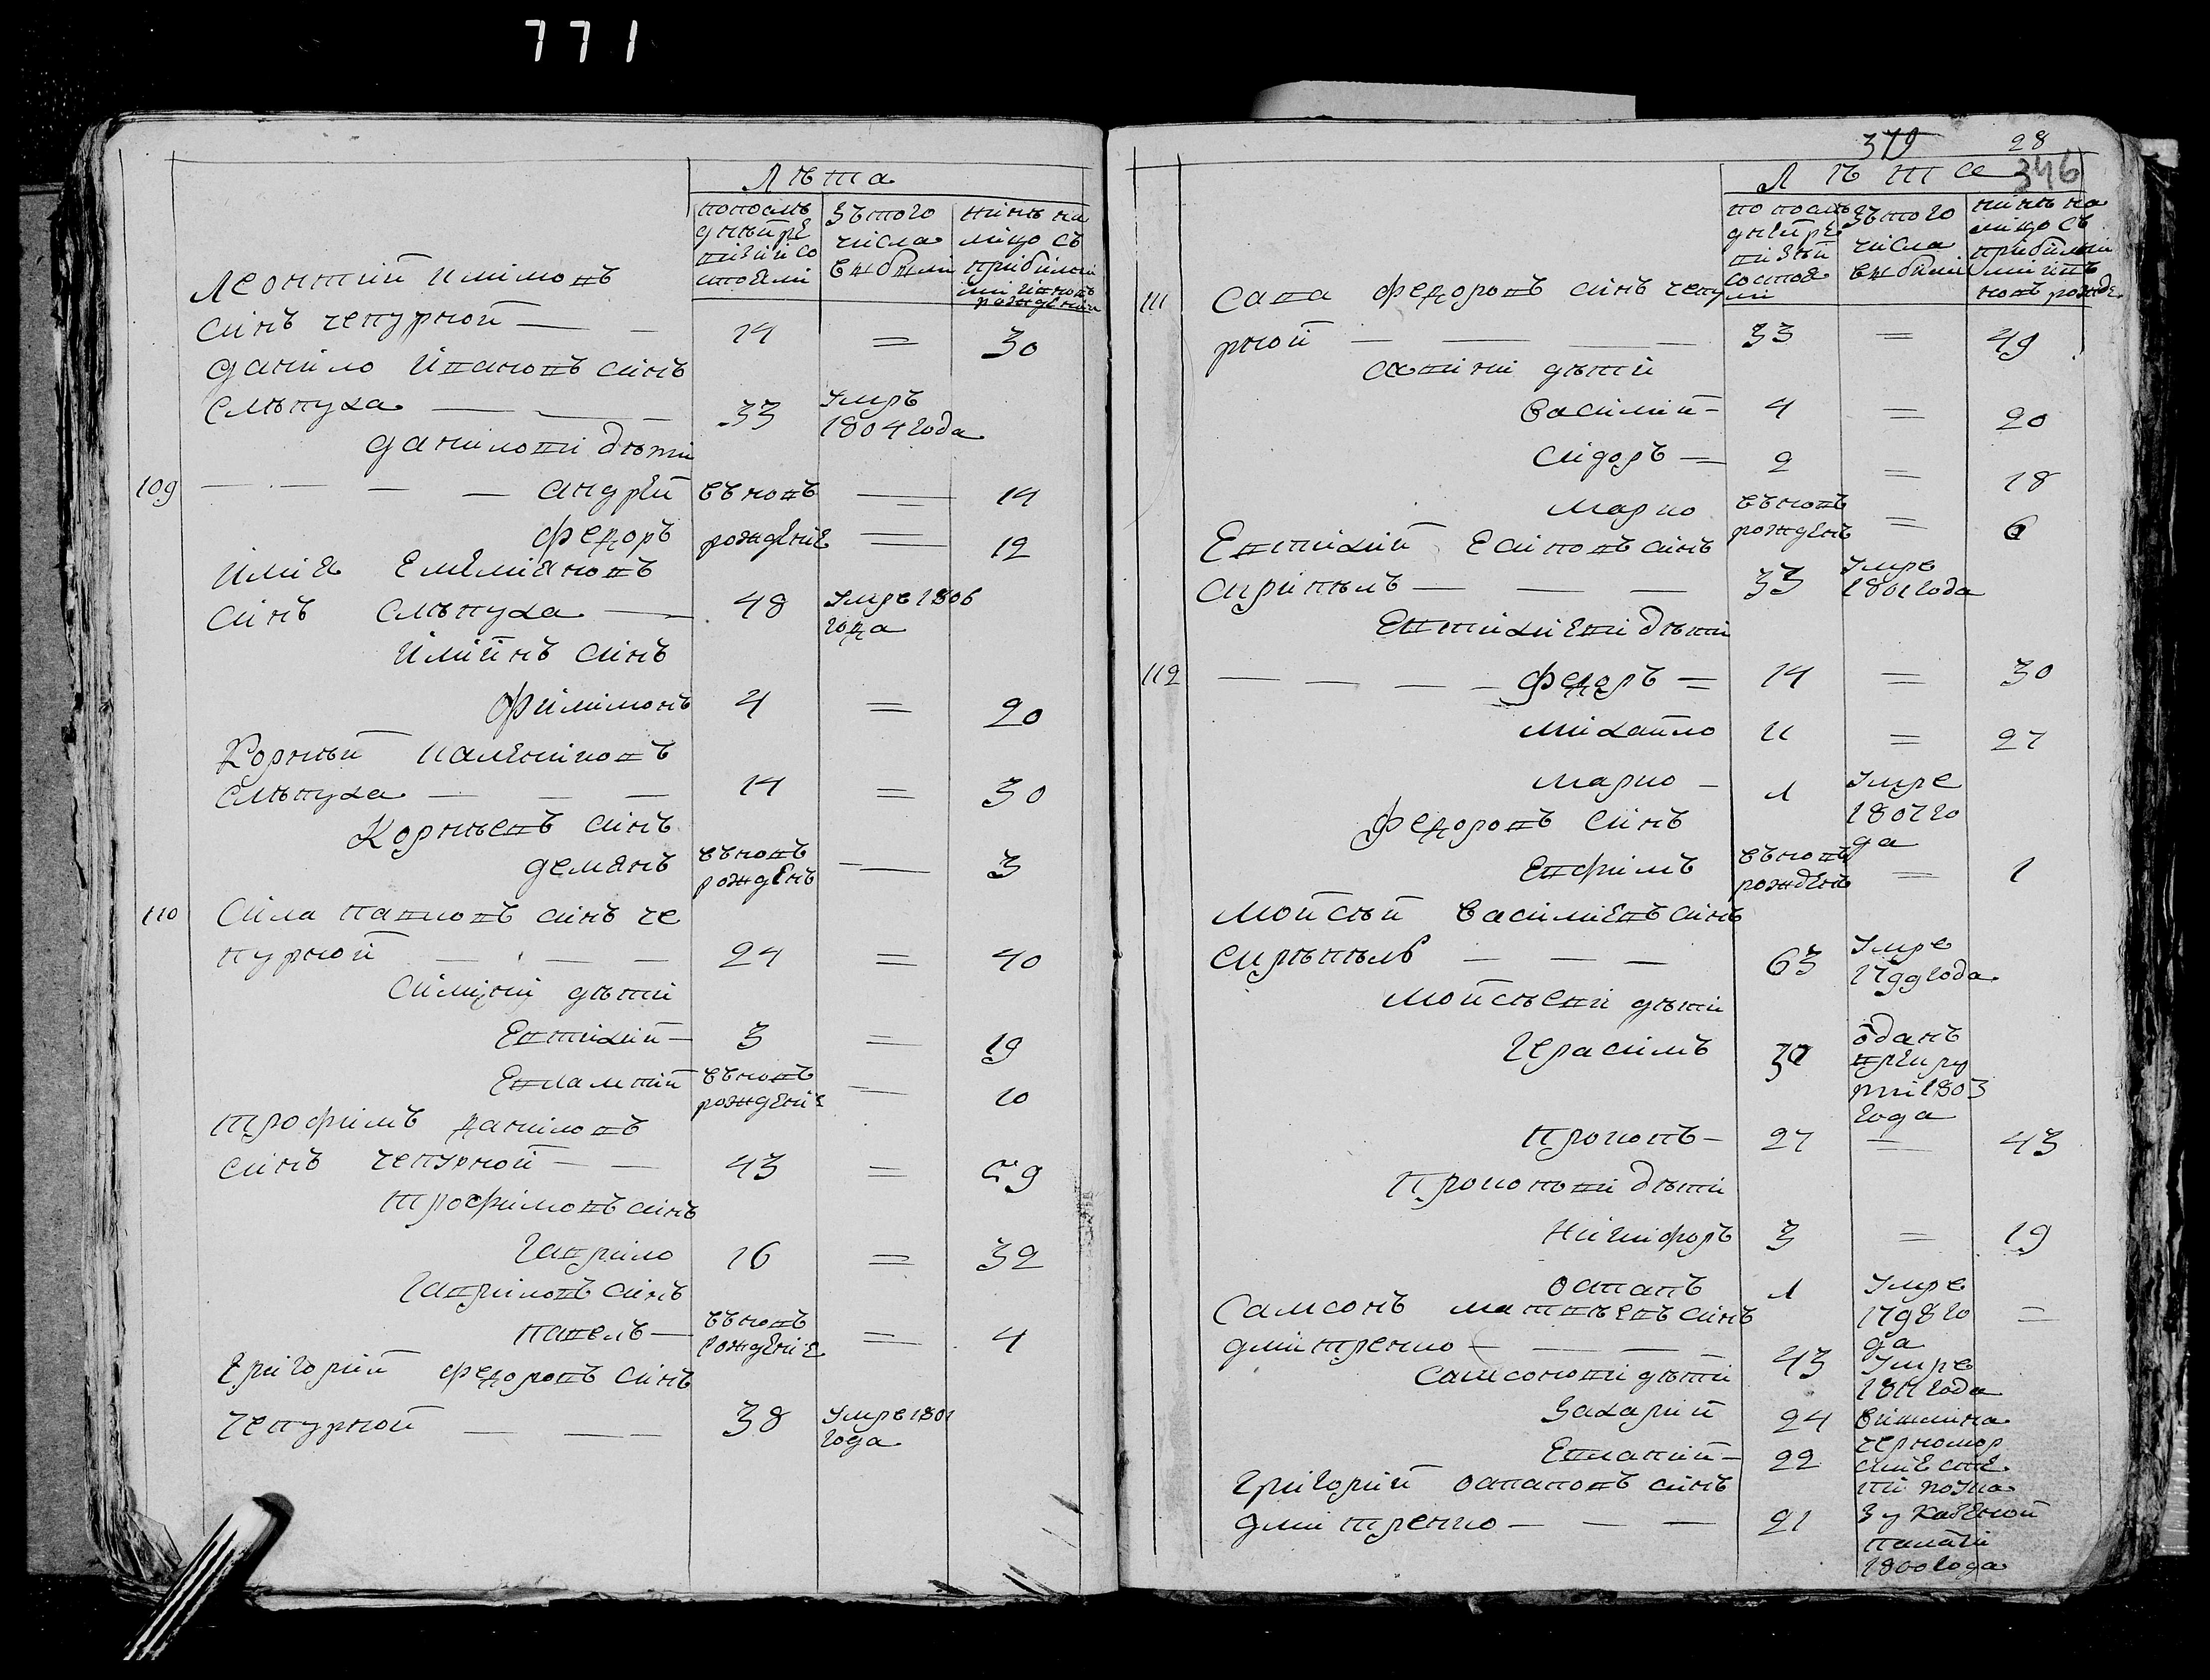 771
Лѣта
попослѣ
днѣй ре
визіи со
стояли
зътого
числа
выбыли
нинѣ на
лицо съ
прибилими
иновь
рожденіи
Леонтий Климовъ
синъ чепурной — — 14 = 30
Данило Ивановъ синъ
Слѣпуха — — — 33 Умръ
1804 года
Даниловi дѣти
109 — — — — андрей въновъ — 14
федоръ рожденіе — 12
Илия Емелиановъ
синъ Слѣпуха — 48 Умре 1806
года
Илiинъ синъ
Филимонъ 4 = 20
Корнѣй
Слѣпуха — — — 14 = 30
Корнѣевъ синъ
демянъ въновъ
рожденъ — 3
110 Сила павловъ синъ че
пурной — — — 24 = 40
Силины дѣти
Евтихий — 3 = 19
Евлампий въновъ
рожденіе — 10
Трофимъ даниловъ
синъ чепурной — — 43 = 59
Трофимовъ синъ
Гаврило 16 = 32
Гавриловъ синъ
павелъ — въновъ
рожденіе = 4
Григорий федоровъ синъ
Чепурной — — — 38 Умре 1801
года
379 28
346
Лѣта
по послѣ
днѣй ре
визъи
состоя
ли
зътого
числа
выбили
нинѣ на
лицо съ
прибилими
новъ рожде
111 Сава федоровъ синъ чепу
рной — — — — 33 = 49
савини дѣти
Василий — 4 = 20
Сидоръ — 2 = 18
марко въновъ
рожденъ = 6
Евтихий Есиповъ синъ
Скрипѣль — — — 33 Умре
1801 года
Евтихиеви дѣти
112 — — — — федоръ = 14 = 30
михайло 11 = 27
марко — 1 Умре
1807 го
да
федоровъ синъ
Евфимъ въновъ
рожденъ = 1
Мойсѣй Василиевъ синъ
Скрѣпѣль — — — 63 Умре
1799 года
Мойсѣеви дѣти
Герасимъ 30 ѿданъ
врекру
ти 1803
года
прокопъ — 27 = 43
Прокопови дѣти
Никифоръ 3 = 19
Остапъ 1 Умре
1798 го
да =
Самсонъ матвѣевъ синъ
дмитренко — — — 43 Умре
1811 года
Самсонови дѣти
Захарий 24 вишли на
Евланий — 22 черномор
ские сте
пи поука
Григорий остаповъ синъ
дмитренко — — — 21 зу казеной
палати
1800 года